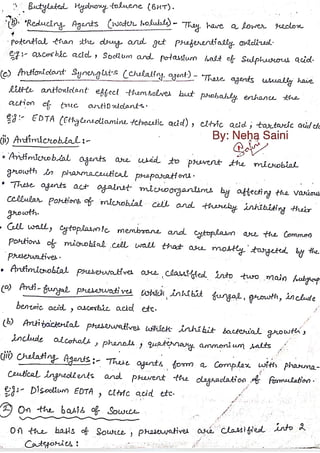 Butylated Hydroxy toluene (BHT).
(b) Reducing Agents (water soluble):- They have a lower redox
potential than the drug and get preferentially oxidised.
Eg:- ascorbic acid, Sodium and potassium salt of Sulphurous acid.
(c) Antioxidant Synergists (Chelating agent) - These agents usually have
little antioxidant effect themselves but probably enhance the
action of true antioxidants.
Eg:- EDTA (Ethylenediamine tetraacetic acid), citric acid, tartaric acid etc.
(ii) Antimicrobial:-
By: Neha Saini
• Antimicrobial agents are used to prevent the microbial
growth in pharmaceutical preparations.
• These agents act against microorganisms by affecting the various
cellular portions of microbial cell and thereby inhibiting their
growth.
• Cell wall, cytoplasmic membrane and cytoplasm are the common
portions of microbial cell wall that are mostly targeted by the
preservatives.
• Antimicrobial preservatives are classified into two main subgroup
(a) Anti-fungal preservatives which inhibit fungal growth, include
benzoic acid, ascorbic acid etc.
(b) Antibacterial preservatives which inhibit bacterial growth,
include alcohals, phenols, quaternary ammonium salts
(iii) Chelating Agents:- These agents form a Complex with pharma-
ceutical ingredients and prevent the degradation of formulation.
Eg:- Disodium EDTA, citric acid etc.
② On the basis of Source
On the basis of Source, preservatives are classified into 2
Categories: